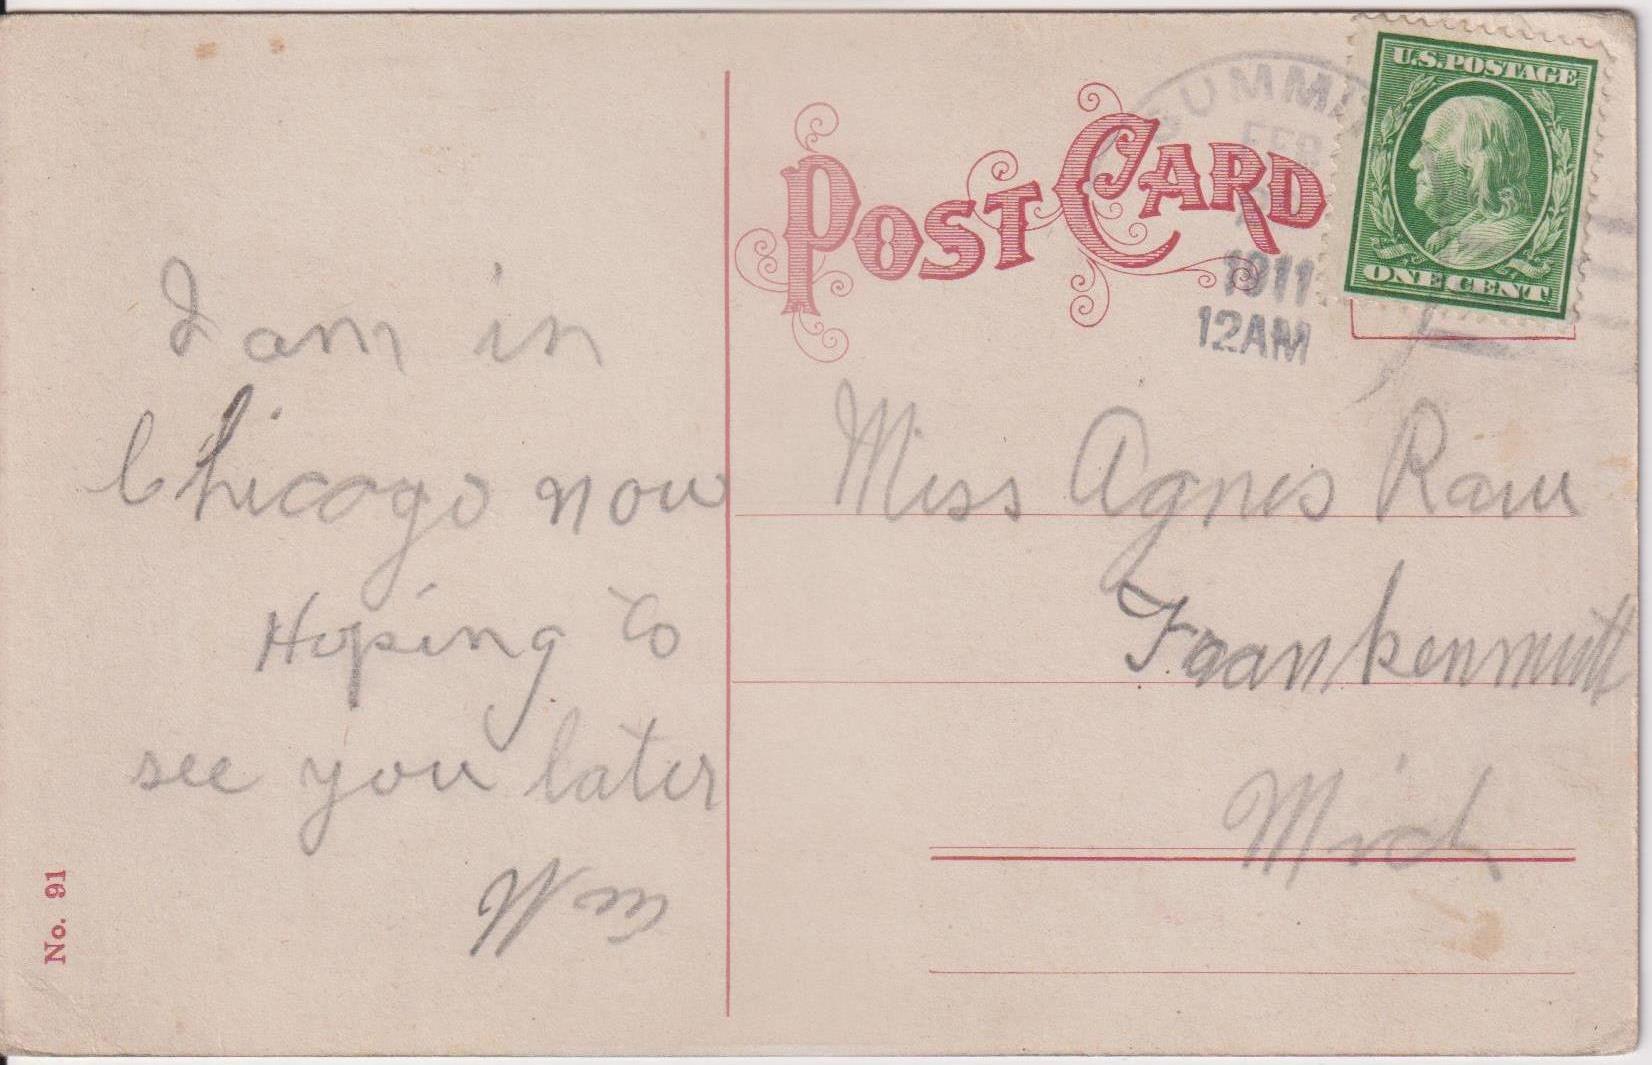 I am in
Chicago now
Hoping to
see you later
Wm
No. 91
POST CARD
SUMMI
FEB
1911
12AM
U.S. POSTAGE
ONE CENT
Miss Agnes Rau
Frankenmutt
Mich